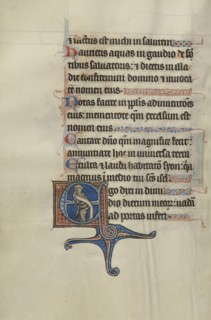 & factus est michi in salutem
Haurietis aquas in gaudio de fon
tibus saluatoris: & dicetis in illa
die confitemini domino & inuoca
te nomen eius.
Notas facite in populis adinuentiones
eius: mementote quoniam excelsum est
nomen eius.
Cantate domino quoniam magnifice fecit:
annuntiate hoc in uniuersa terra
Exulta & lauda habitatio syon: quia
magnus in medio tui sanctus israel.
Ego dixi in dimi
dio dierum meorum: uadam
ad portas inferi.